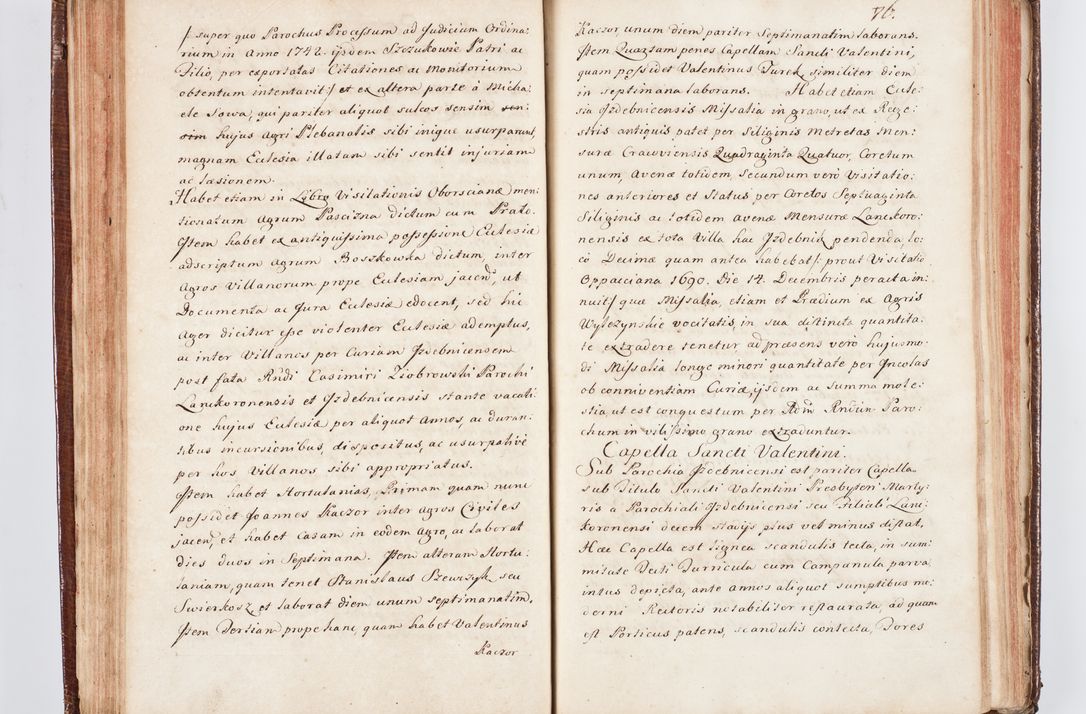 super quo Parochus Processum ad Judicium Ordina:
rium in Anno 1742. ijsdem Szczukowie Patri ac
Filio, per esportatas Citationes ac Monitorium
obtentum intentavit et ex altera parte à Micha:
ele Sowa, qui pariter aliquot sulcos sensim sen:
sim hujus agri Plebanalis sibi inique usurparunt,
magnam Eclesia illatam sibi sentit injuriam
ac læsionem.
Habet etiam in Libro Visitationis Oborscianæ men:
tionatum Agrum Pascizna dictum cum Prato.
Jtem habet ex antiquissima possessione Eclesiæ
adscriptum Agrum Boszkowka dictum, inter
Agros Villanorum prope Eclesiam jacen, ut
Documenta ac Jura Eclesiæ edocent, sed hic
Ager dicitur esse violenter Eclesiæ ademptus,
ac inter Villanos per Curiam Jzdebnicensem
post fata Rndi Casimiri Ziobrowski Parochi
Lanckoronensis et Jzdebnicensis stante vacati:
one hujus Eclesiæ per aliquot Annos, ac duran:
tibus incursionibus, dispositus, ac usurpativè
per hos Villanos sibi appropriatus.
Jtem habet Hortulanias, Primam quam nunc
possidet Joannes Kaczor inter agros Civiles
jacen, et habet Casam in eodem agro, ac laborat
Dies duos in Septimana. Jtem alteram Hortu:
laniam, quam tenet Stanislaus Szewczyk seu
Swierkosz et laborat diem unum septimanatim,
Jtem Tertiam prope hanc, quam habet Valentinus
Kaczor
Kaczor, unum diem pariter Septimanatim laborans.
Jtem Quartam penes Capellam Sancti Valentini,
quam possidet Valentinus Turek similiter diem
in septimana laborans. Habet etiam Ecle:
sia Jzdebnicensis Missalia in grano, ut ex Rege:
stris antiquis patet per Siliginis Metretas Men:
suræ Cracoviensis Quadraginta Quatuor, Coretum
unum, Avenæ totidem, Secundum verò Visitatio:
nes anteriores et Status per Coretos Septuaginta
Siliginis ac totidem avenæ Mensuræ Lanckoro:
nensis ex tota Villa hac Jzdebnik pendenda, lo:
cò Decimæ quam antea habebat prout Visitatio
Oppacciana 1690. Die 14. Decembris peracta in:
nuit quæ Missalia, etiam et Prædium ex Agris
Wylezynskie vocitatis, in sua distincta quantita:
te extradere tenetur ad præsens verò hujusmo:
di Missalia longè minori quantitate per Jncolas
ob conniventiam Curiæ, ijsdem ac summa mole:
stia, ut est conquestum per Adm Rndum Paro:
chum in vilissimo grano extraduntur.
Capella Sancti Valentini.
Sub Parochia Jzdebnicensi est pariter Capella
sub Titulo Sancti Valentini Presbyteri Marty:
ris à Parochiali Jzdebnicensi seu Filiali Lanc:
koronensi decem stadijs plus vel minus distat,
Hæc Capella est lignea scandulis tecta, in sum:
mitate Tecti Turricula cum Campanula parva
intus depicta, ante annos aliquot sumptibus mo:
derni Rectoris notabiliter restaurata, ad quam
est Porticus patens, scandulis contecta, Fores